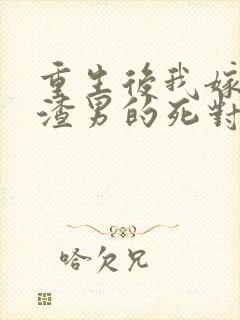 重生後我嫁
渣男的死對
哈欠兄